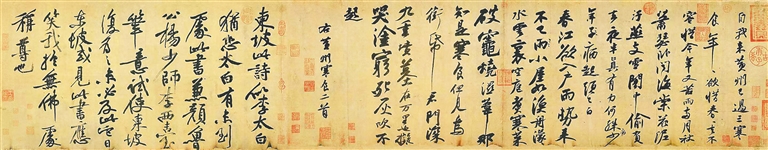 自我来黄州已過三寒
食年年欲惜春春去不
容惜今年又苦雨兩月秋
蕭瑟卧聞海棠花泥
汙燕支雪闇中偷負
去夜半真有力何殊少
年子病起頭已白
春江欲入户雨勢来
不已雨小屋如漁舟濛濛
水雲裏空庖煮寒菜
破竈燒濕葦那
知是寒食但見烏
銜帋君門深
九重墳墓在万里也擬
哭塗窮死灰吹不
起
右黄州寒食二首
東坡此詩似李太白
猶恐太白有未到
處此書兼顔魯
公楊少師李西臺
筆意試使東坡
復為之未必及此它日
東坡或見此書應
笑我於無佛處
稱尊也